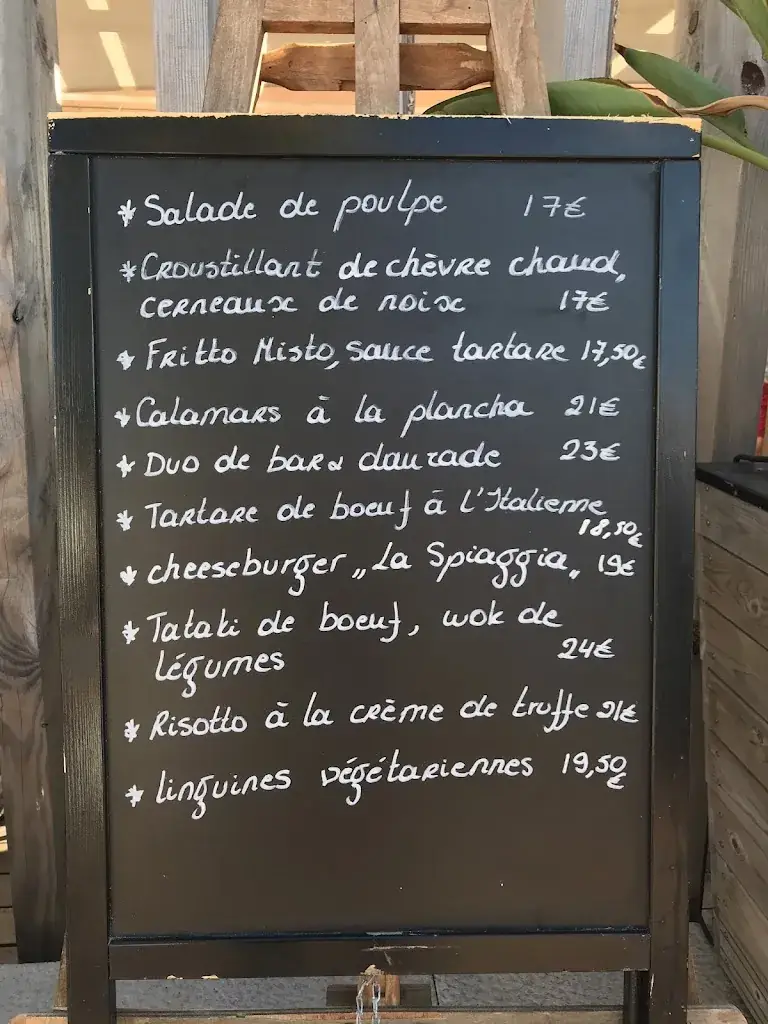 * Salade de poulpe 17€
* Croustillant de chèvre chaud,
cerneaux de noix 17€
* Fritto Misto, sauce tartare 17,50€
* Calamars à la plancha 21€
* Duo de bar & daurade 23€
* Tartare de boeuf à l'Italienne
18,50€
* cheeseburger „La Spiaggia„ 19€
* Tataki de boeuf, wok de
légumes 24€
* Risotto à la crème de truffe 21€
* linguines végétariennes 19,50€